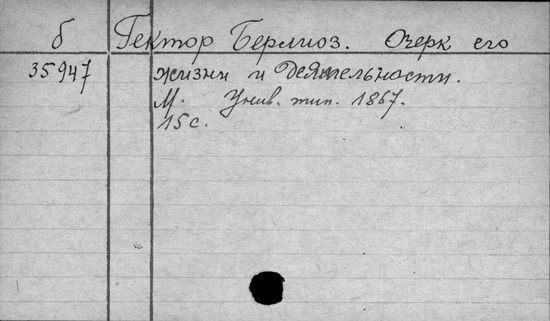 б Гектор Берлиоз. Очерк его
35947 жизни и деятельности.
М. Унив. тип. 1867.
15 с.